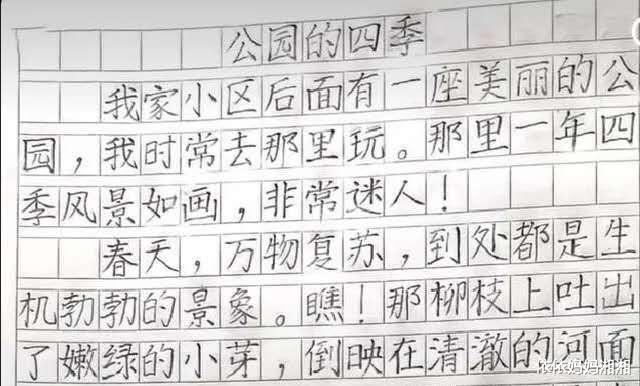 公园的四季
我家小区后面有一座美丽的公
园，我时常去那里玩。那里一年四
季风景如画，非常迷人！
春天，万物复苏，到处都是生
机勃勃的景象。瞧！那柳枝上吐出
了嫩绿的小芽，倒映在清澈的河面
依依妈妈湘湘